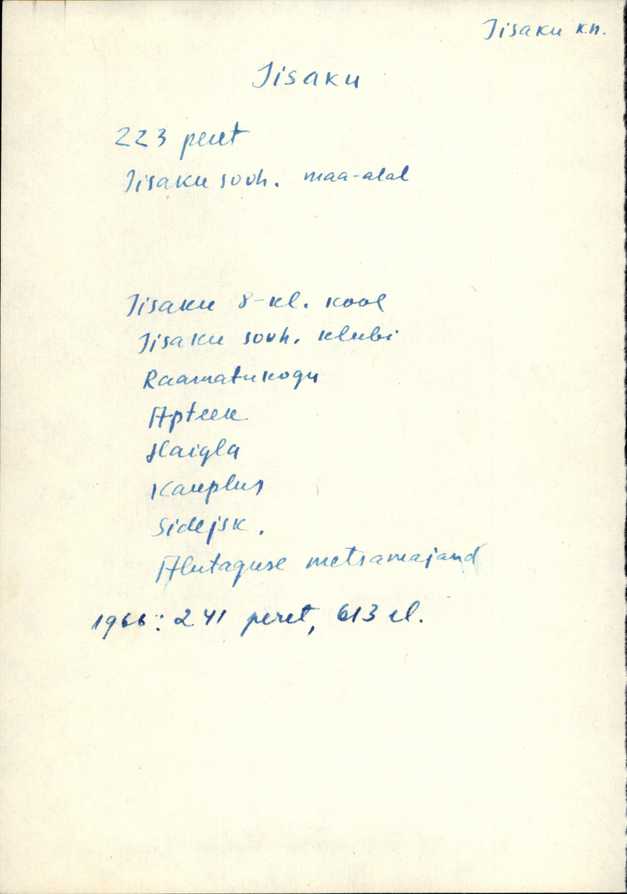 Iisaku kn.
Iisaku
223 peret
Iisaku sovh. maa-alal
Iisaku 8-kl. kool
Iisaku sovh. klubi
Raamatukogu
Apteek
Haigla
Kauplus
Sidejsk.
Alutaguse metsamajand
1966: 241 peret, 613 el.